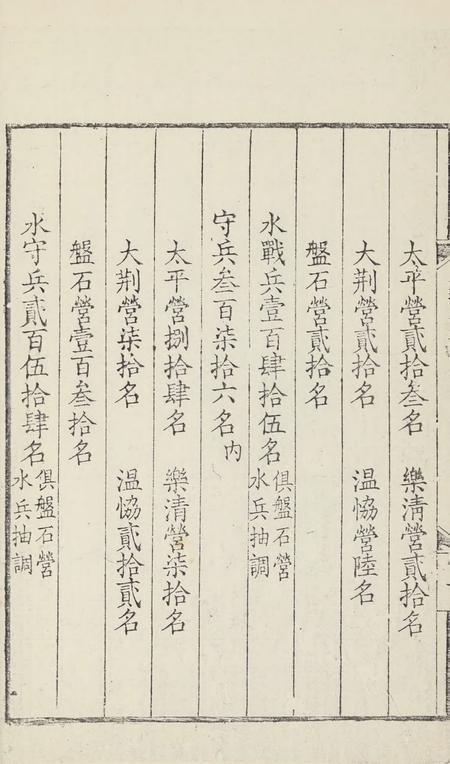 太平營貳拾叁名　樂清營貳拾名
大荆營貳拾名　温恊營陸名
盤石營貳拾名
水戰兵壹百肆拾伍名俱盤石營水兵抽調
守兵叁百柒拾六名内
太平營捌拾肆名　樂清營柒拾名
大荆營柒拾名　温恊貳拾貳名
盤石營壹百叁拾名
水守兵貳百伍拾肆名俱盤石營水兵抽調